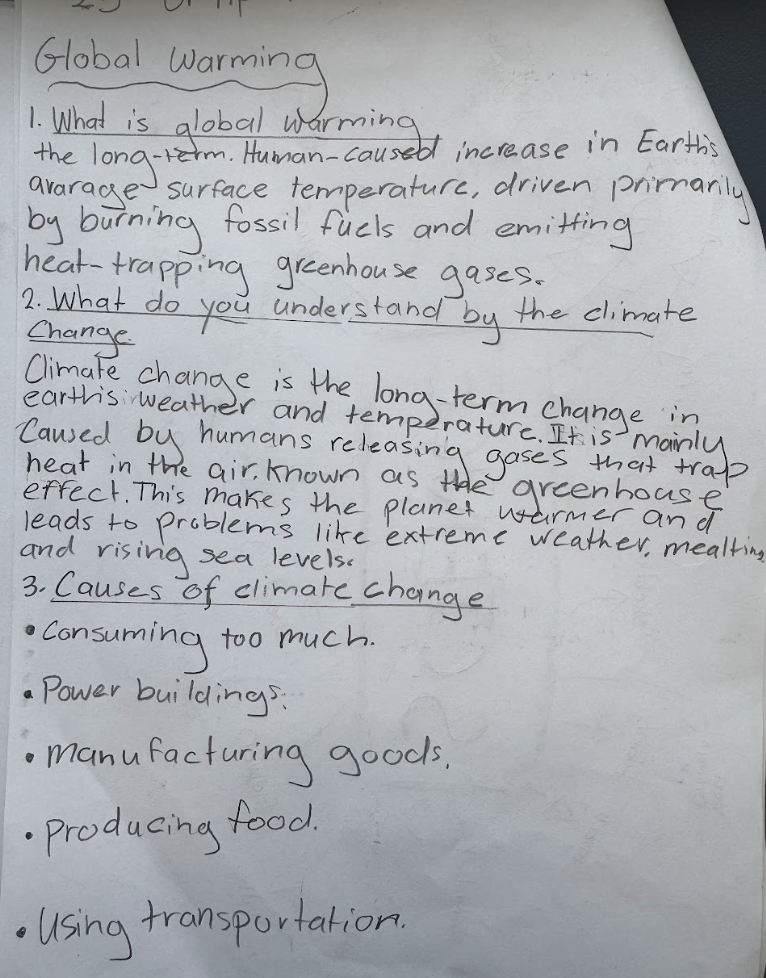 Global Warming
1. What is global warming
the long-term. Human-caused increase in Earth's
avarage surface temperature, driven primarily
by burning fossil fuels and emitting
heat-trapping greenhouse gases.
2. What do you understand by the climate
Change.
Climate change is the long-term change in
earth's weather and temperature. It is mainly
Caused by humans releasing gases that trap
heat in the air. Known as the greenhouse
effect. This makes the planet warmer and
leads to problems like extreme weather, mealting
and rising sea levels.
3. Causes of climate change
• Consuming too much.
• Power buildings.
• manufacturing goods,
• producing food.
• Using transportation.